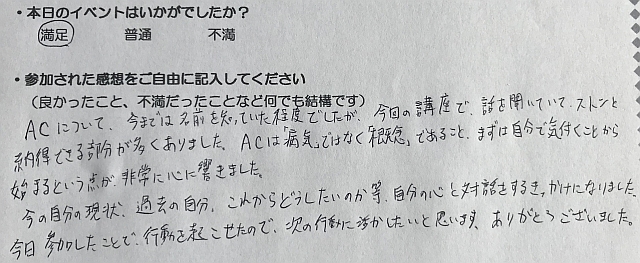 ・本日のイベントはいかがでしたか？
満足 普通 不満
・参加された感想をご自由に記入してください
（良かったこと、不満だったことなど何でも結構です）
ACについて、今までは名前を知っていた程度でしたが、今回の講座で、話を聞いていて、ストンと
納得できる部分が多くありました。ACは「病気」ではなく「概念」であること、まずは自分で気付くことから
始まるという点が、非常に心に響きました。
今の自分の現状、過去の自分、これからどうしたいのか等、自分の心と対話をするきっかけになりました。
今日参加したことで、行動を起こせたので、次の行動に活かしたいと思います。ありがとうございました。